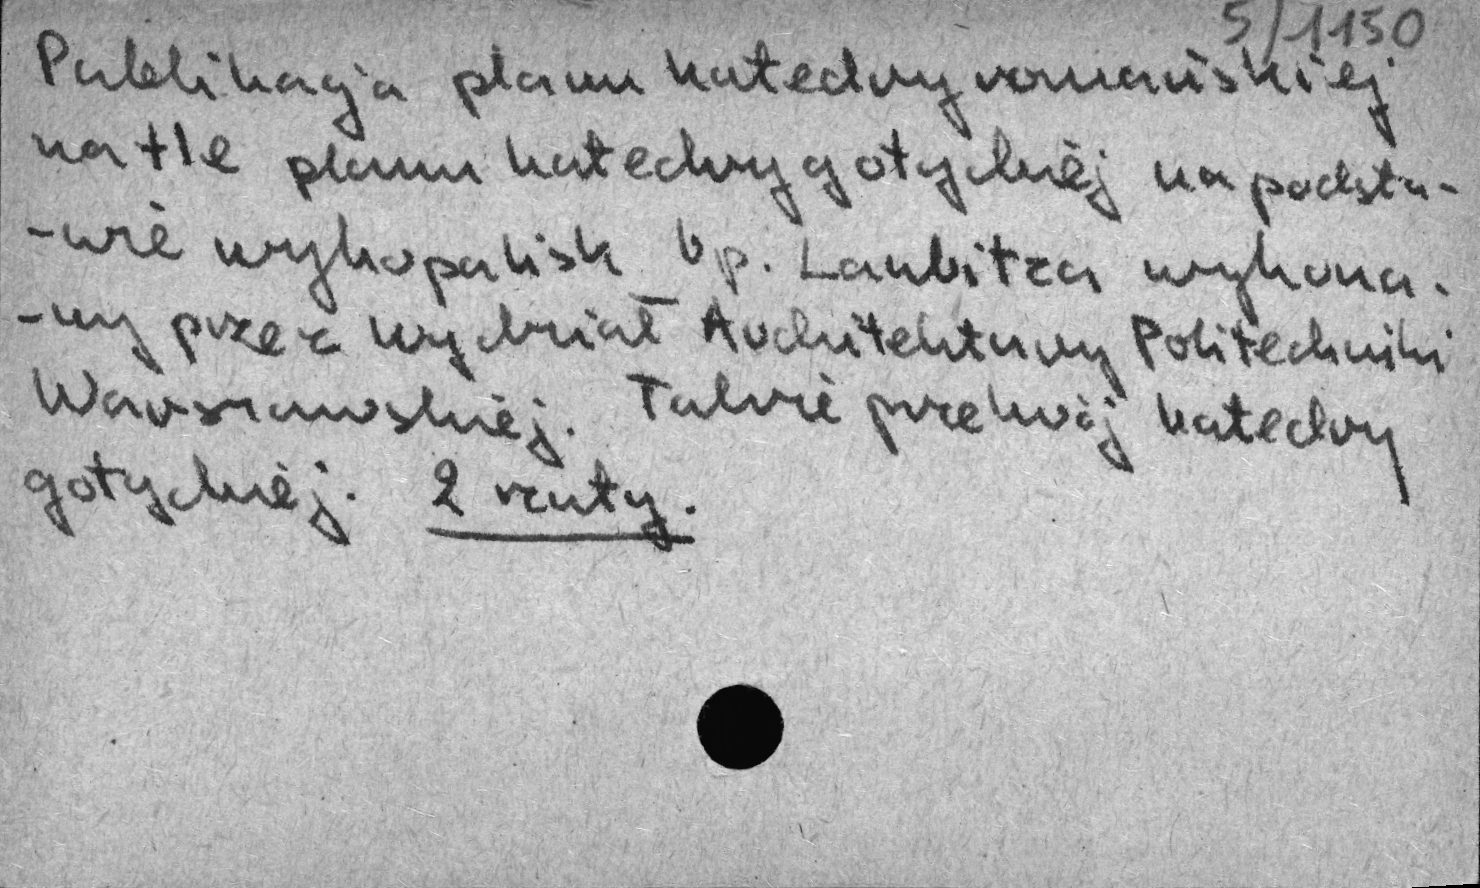 5/1150
Publikacja planu katedry romańskiej
na tle planu katedry gotyckiej na podsta-
-wie wykopalisk bp. Laubitza wykona-
-ny przez Wydział Architektury Politechniki
Warszawskiej. Także przekrój katedry
gotyckiej. 2 rzuty.